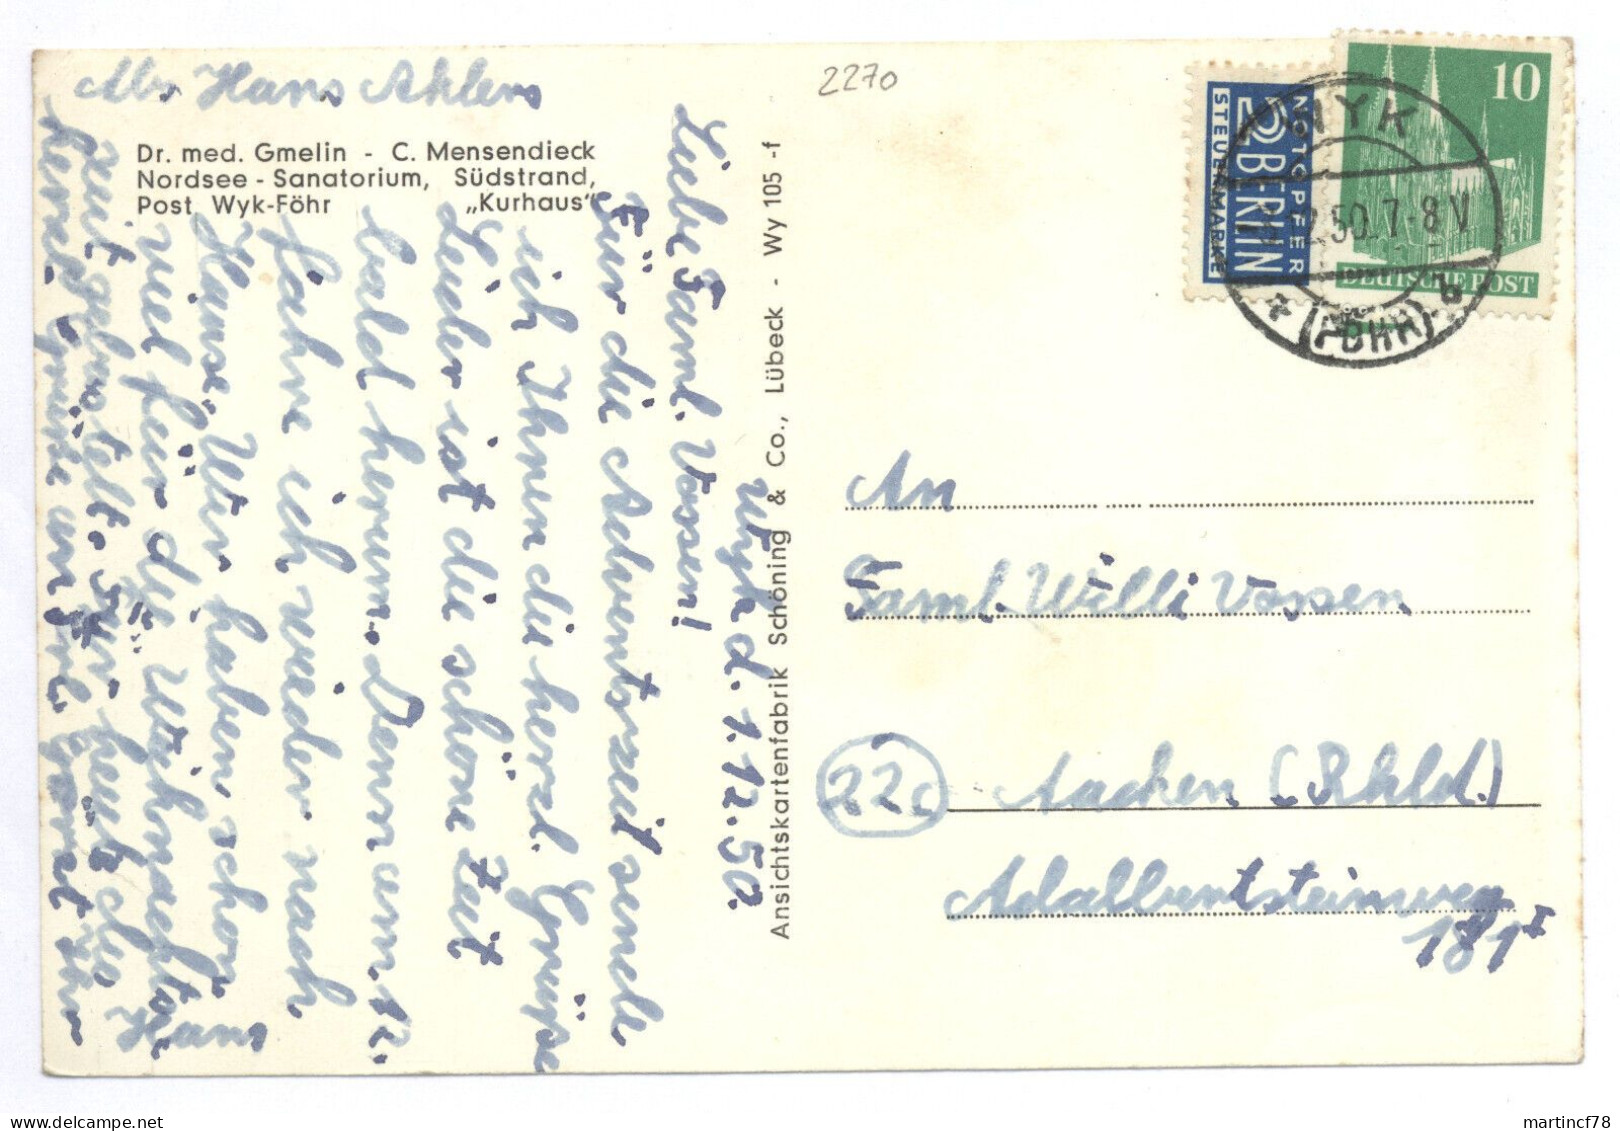 Abs Hans Ahlers
2270
Dr. med. Gmelin - C. Mensendieck
Nordsee - Sanatorium, Südstrand,
Post Wyk-Föhr „Kurhaus"
Wyk d. 1.12.50.
Liebe Faml. Vossen!
Für die Adventszeit sende
ich Ihnen die herzl. Grüße
Leider ist die schöne Zeit
bald herum. Denn am 12.
fahre ich wieder nach
Hause. Wir haben schon
viel für die Weihnachts
zeit gebastelt. Für heute die
herzl. Grüße von Ihr
Hans
Ansichtskartenfabrik Schöning & Co., Lübeck - Wy 105 -f
NOTOPFER
2 BERLIN
STEUERMARKE
10
DEUTSCHE POST
WYK
.50.7-8 V
(FÖHR)
b
An
Faml. Willi Vossen
22c
Aachen (Rhld.)
Adalbertsteinweg
181 I
martincf78